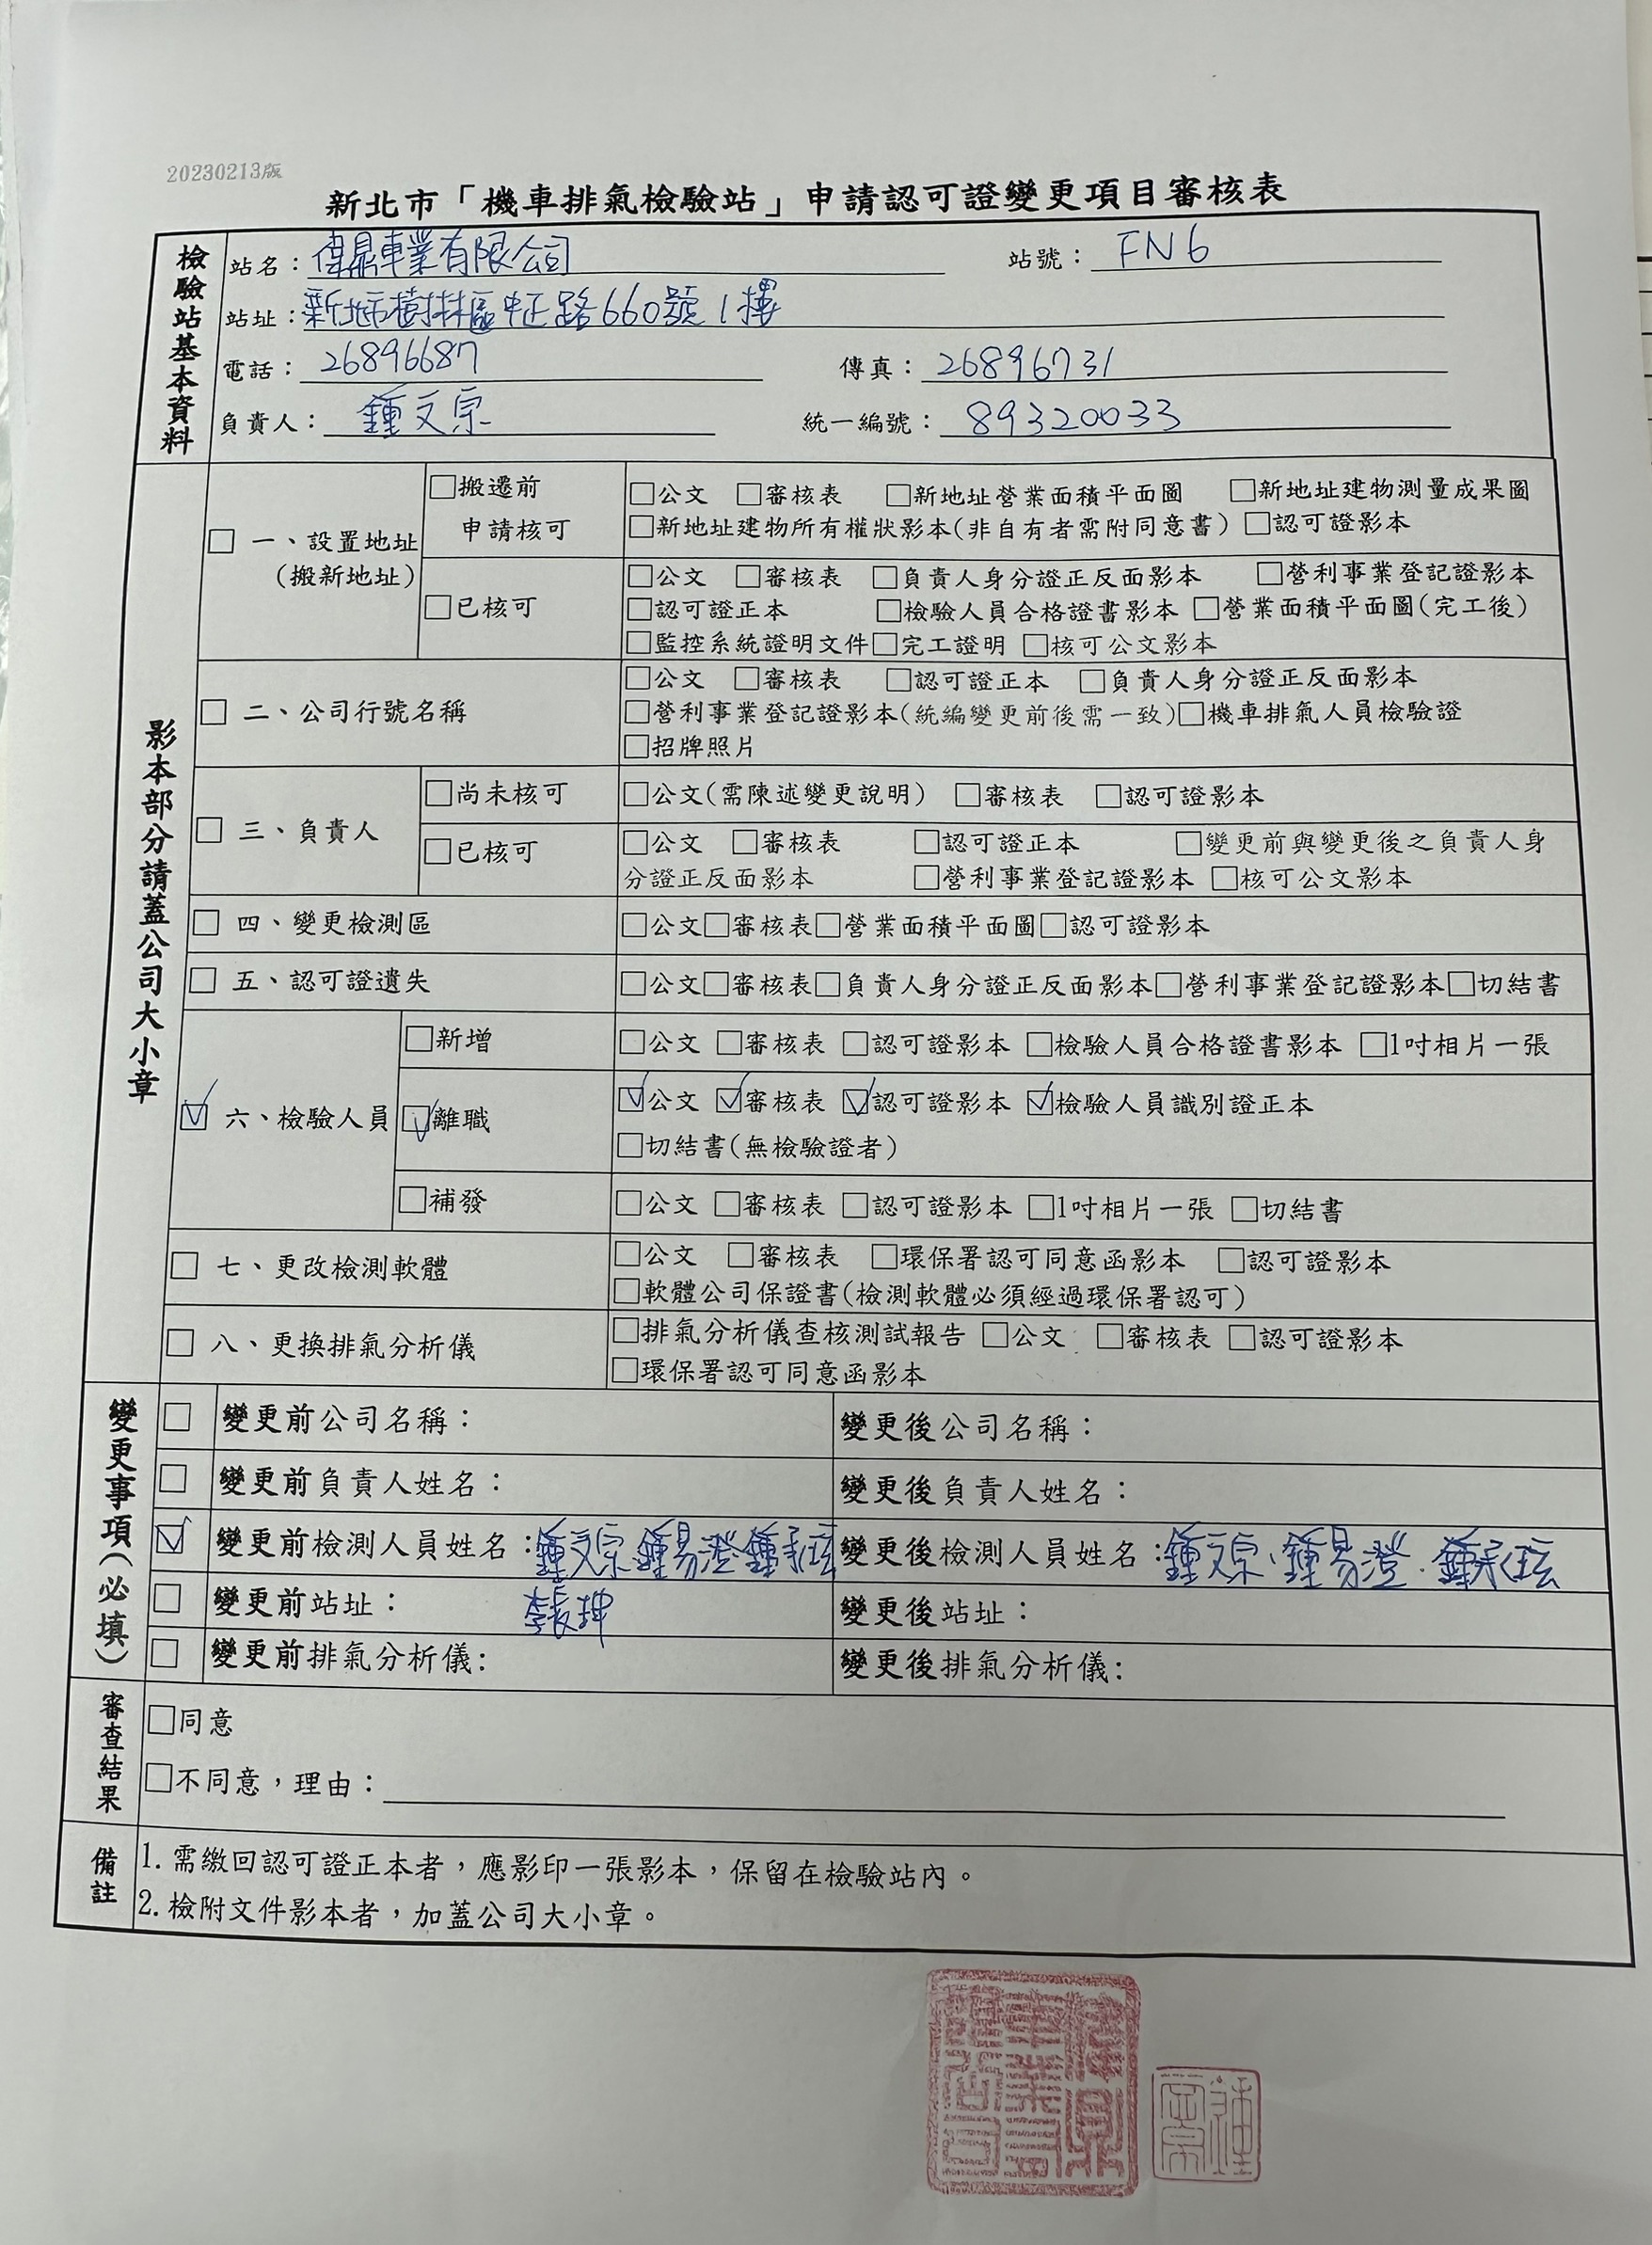 20230213版
新北市「機車排氣檢驗站」申請認可證變更項目審核表
檢驗站基本資料
站名：偉鼎車業有限公司 站號：FN6
站址：新北市樹林區中正路660號1樓
電話：26896687 傳真：26896731
負責人：鍾文宗 統一編號：89320033
影本部分請蓋公司大小章
□ 一、設置地址(搬新地址)
□搬遷前申請核可
□公文 □審核表 □新地址營業面積平面圖 □新地址建物測量成果圖
□新地址建物所有權狀影本(非自有者需附同意書) □認可證影本
□已核可
□公文 □審核表 □負責人身分證正反面影本 □營利事業登記證影本
□認可證正本 □檢驗人員合格證書影本 □營業面積平面圖(完工後)
□監控系統證明文件□完工證明 □核可公文影本
□ 二、公司行號名稱
□公文 □審核表 □認可證正本 □負責人身分證正反面影本
□營利事業登記證影本(統編變更前後需一致)□機車排氣人員檢驗證
□招牌照片
□ 三、負責人
□尚未核可 □公文(需陳述變更說明) □審核表 □認可證影本
□已核可 □公文 □審核表 □認可證正本 □變更前與變更後之負責人身
分證正反面影本 □營利事業登記證影本 □核可公文影本
□ 四、變更檢測區 □公文□審核表□營業面積平面圖□認可證影本
□ 五、認可證遺失 □公文□審核表□負責人身分證正反面影本□營利事業登記證影本□切結書
☑ 六、檢驗人員
□新增 □公文 □審核表 □認可證影本 □檢驗人員合格證書影本 □1吋相片一張
☑離職 ☑公文 ☑審核表 ☑認可證影本 ☑檢驗人員識別證正本
□切結書(無檢驗證者)
□補發 □公文 □審核表 □認可證影本 □1吋相片一張 □切結書
□ 七、更改檢測軟體
□公文 □審核表 □環保署認可同意函影本 □認可證影本
□軟體公司保證書(檢測軟體必須經過環保署認可)
□ 八、更換排氣分析儀
□排氣分析儀查核測試報告 □公文 □審核表 □認可證影本
□環保署認可同意函影本
變更事項(必填)
□ 變更前公司名稱： 變更後公司名稱：
□ 變更前負責人姓名： 變更後負責人姓名：
☑ 變更前檢測人員姓名：鍾文宗 鍾易澄 鍾承玹 變更後檢測人員姓名：鍾文宗、鍾易澄、鍾承玹
□ 變更前站址： 李長坤 變更後站址：
□ 變更前排氣分析儀: 變更後排氣分析儀:
審查結果
□同意
□不同意，理由：
備註
1. 需繳回認可證正本者，應影印一張影本，保留在檢驗站內。
2. 檢附文件影本者，加蓋公司大小章。